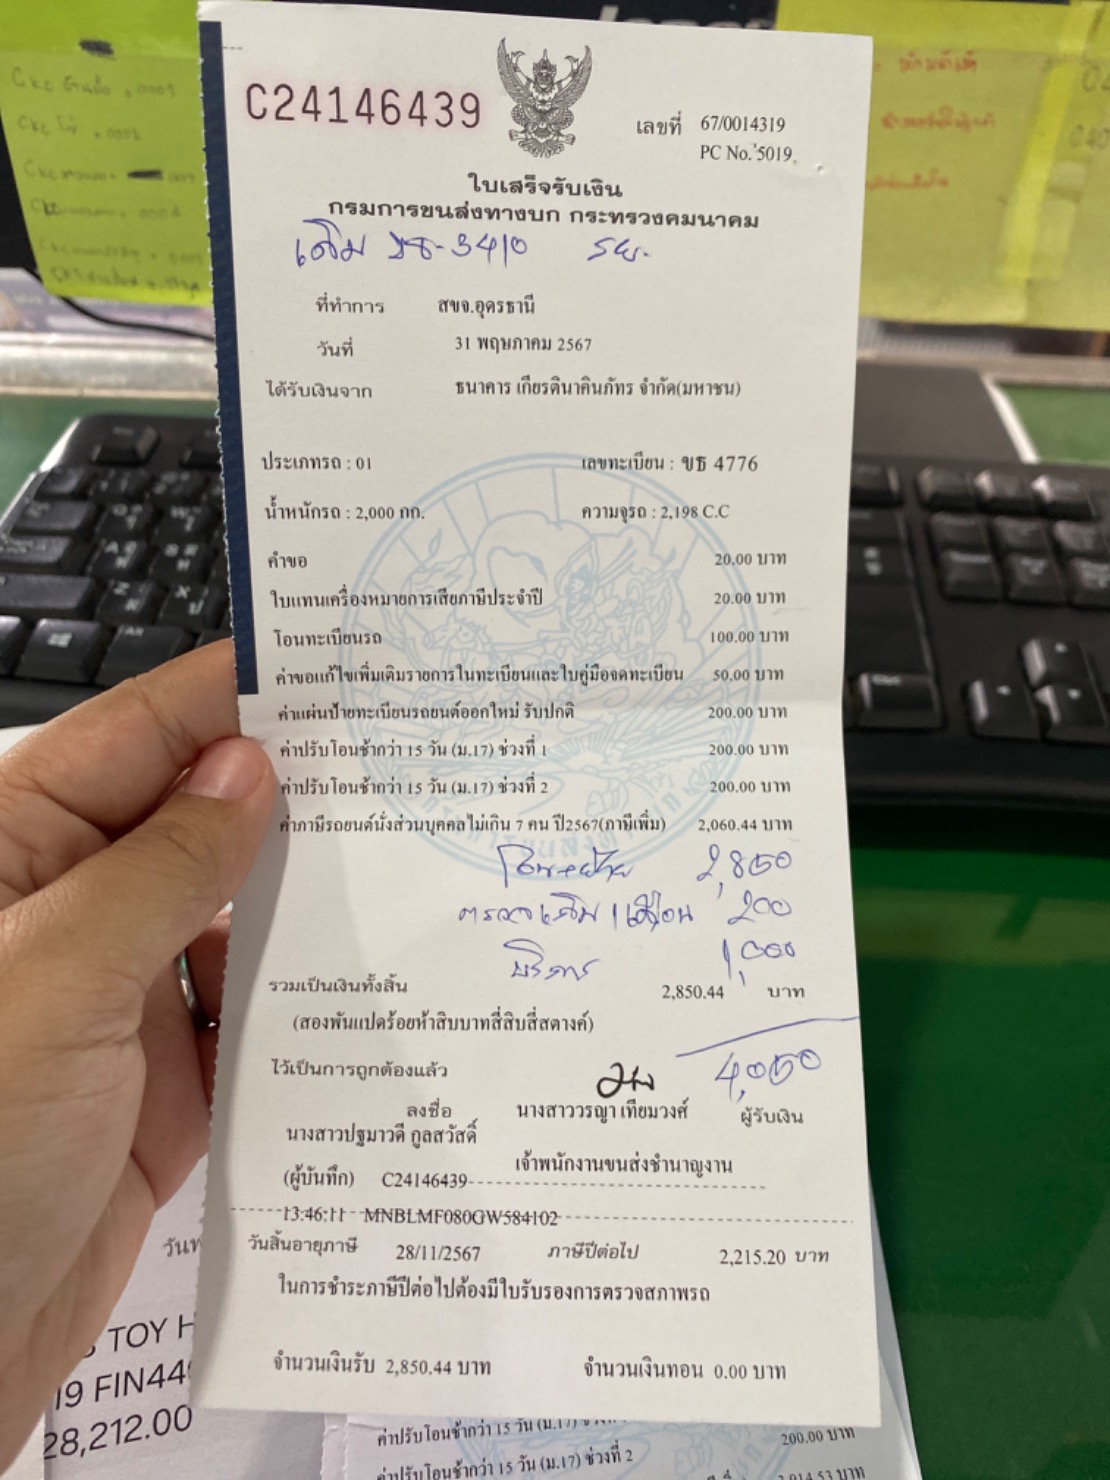 C24146439
เลขที่ 67/0014319
PC No. 5019
ใบเสร็จรับเงิน
กรมการขนส่งทางบก กระทรวงคมนาคม
เดิม 3410 รย.
ที่ทำการ สขจ.อุดรธานี
วันที่ 31 พฤษภาคม 2567
ได้รับเงินจาก ธนาคาร เกียรตินาคินภัทร จำกัด(มหาชน)
ประเภทรถ : 01 เลขทะเบียน : ขธ 4776
น้ำหนักรถ : 2,000 กก. ความจุรถ : 2,198 C.C
คำขอ 20.00 บาท
ใบแทนเครื่องหมายการเสียภาษีประจำปี 20.00 บาท
โอนทะเบียนรถ 100.00 บาท
ค่าขอแก้ไขเพิ่มเติมรายการในทะเบียนและใบคู่มือจดทะเบียน 50.00 บาท
ค่าแผ่นป้ายทะเบียนรถยนต์ออกใหม่ รับปกติ 200.00 บาท
ค่าปรับโอนช้ากว่า 15 วัน (ม.17) ช่วงที่ 1 200.00 บาท
ค่าปรับโอนช้ากว่า 15 วัน (ม.17) ช่วงที่ 2 200.00 บาท
ค่าภาษีรถยนต์นั่งส่วนบุคคลไม่เกิน 7 คน ปี2567(ภาษีเพิ่ม) 2,060.44 บาท
2,850
ตรวจเดิม 1 เดือน 200
บริการ 1,000
รวมเป็นเงินทั้งสิ้น 2,850.44 บาท
(สองพันแปดร้อยห้าสิบบาทสี่สิบสี่สตางค์)
4,050
ไว้เป็นการถูกต้องแล้ว
ลงชื่อ นางสาววรญา เทียมวงศ์ ผู้รับเงิน
นางสาวปฐมาวดี กูลสวัสดิ์
เจ้าพนักงานขนส่งชำนาญงาน
(ผู้บันทึก) C24146439
13:46:11 MNBLMF080GW584102
วันสิ้นอายุภาษี 28/11/2567 ภาษีปีต่อไป 2,215.20 บาท
ในการชำระภาษีปีต่อไปต้องมีใบรับรองการตรวจสภาพรถ
จำนวนเงินรับ 2,850.44 บาท จำนวนเงินทอน 0.00 บาท
TOY H
19 FIN44
28,212.00
ค่าปรับโอนช้ากว่า 15 วัน (ม.17)
200.00 บาท
ค่าปรับโอนช้ากว่า 15 วัน (ม.17) ช่วงที่ 2